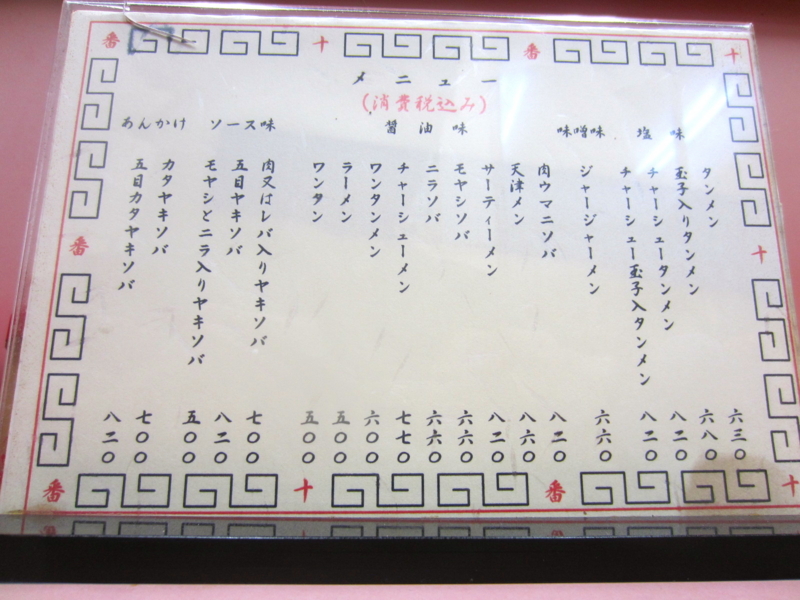 番 十 番 十
メニュー
(消費税込み)
塩味
タンメン 六三〇
玉子入りタンメン 六八〇
チャーシュータンメン 八二〇
チャーシュー玉子入タンメン 八二〇
味噌味
ジャージャーメン 六六〇
醤油味
肉ウマニソバ 八二〇
天津メン 八六〇
サーティーメン 八二〇
モヤシソバ 六六〇
ニラソバ 六六〇
チャーシューメン 七七〇
ワンタンメン 六〇〇
ラーメン 五〇〇
ワンタン 五〇〇
ソース味
肉又はレバ入りヤキソバ 七〇〇
五目ヤキソバ 八二〇
モヤシとニラ入りヤキソバ 五〇〇
あんかけ
カタヤキソバ 七〇〇
五目カタヤキソバ 八二〇
番 十
番 十 番 十